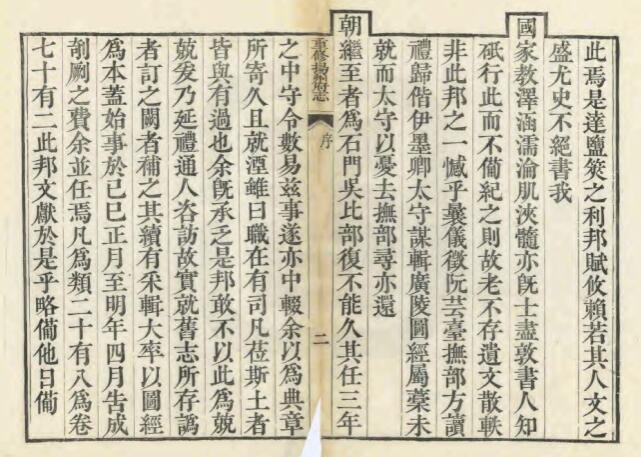 此焉是達鹽筴之利邦賦攸賴若其人文之
盛尤史不絕書我
國家教澤涵濡淪肌浹髓亦旣士盡敦書人知
砥行此而不僃紀之則故老不存遺文散軼
非此邦之一憾乎曩儀徵阮芸臺撫部方讀
禮歸偕伊墨卿太守謀輯廣陵圖經屬藁未
就而太守以憂去撫部尋亦還
朝繼至者爲石門吳比部復不能久其任三年
重修揚州府志 序 二
之中守令數易茲事遂亦中輟余以爲典章
所寄久且就湮雖曰職在有司凡莅斯土者
皆與有過也余旣承乏是邦敢不以此爲兢
兢爰乃延禮通人咨訪故實就舊志所存譌
者訂之闕者補之其續有采輯大率以圖經
爲本蓋始事於己巳正月至明年四月告成
剞劂之費余並任焉凡爲類二十有八爲卷
七十有二此邦文獻於是乎略僃他日僃